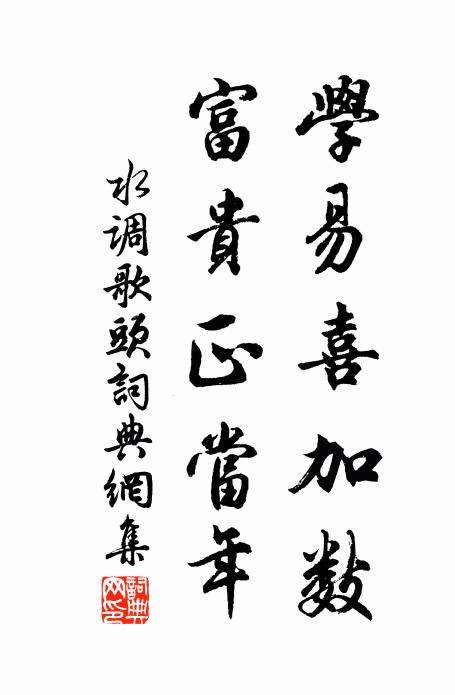 學易喜加数
富貴正當年
水调歌頭詞典網集
詞典网印